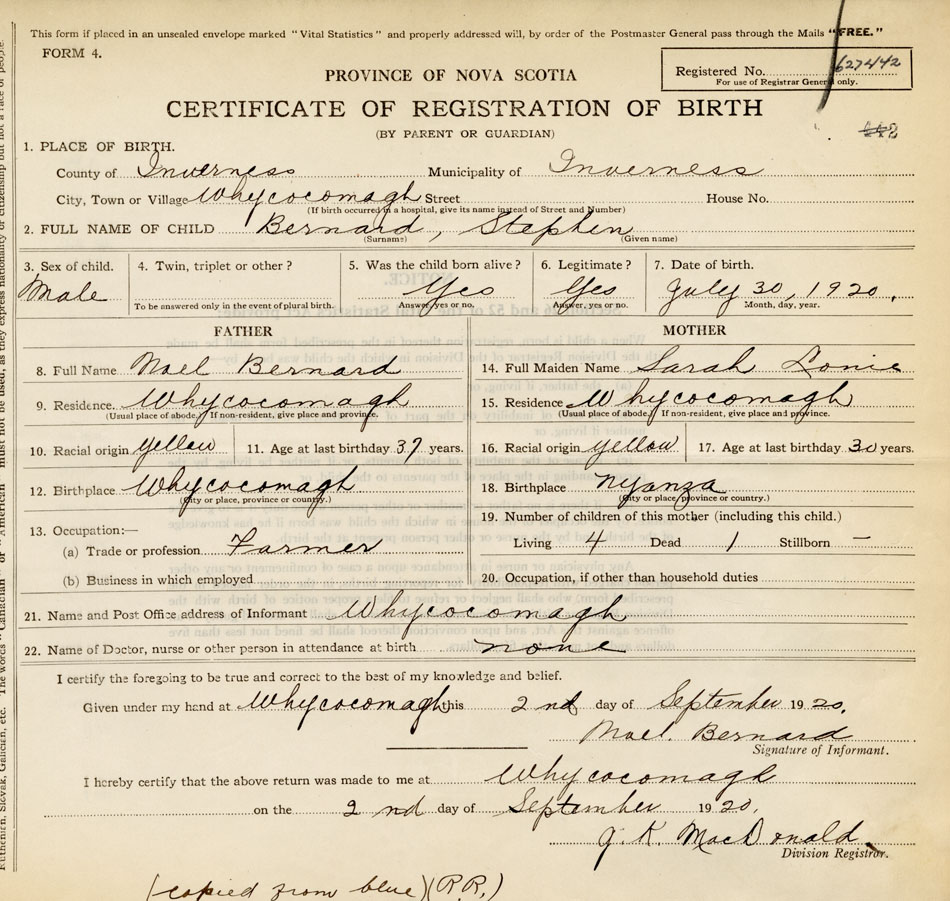 This form if placed in an unsealed envelope marked "Vital Statistics" and properly addressed will, by order of the Postmaster General pass through the Mails "FREE."
FORM 4.
PROVINCE OF NOVA SCOTIA
Registered No. 627442
For use of Registrar General only.
CERTIFICATE OF REGISTRATION OF BIRTH
(BY PARENT OR GUARDIAN)
1. PLACE OF BIRTH.
County of Inverness Municipality of Inverness
City, Town or Village Whycocomagh Street House No.
(If birth occurred in a hospital, give its name instead of Street and Number)
2. FULL NAME OF CHILD Bernard, Stephen
(Surname) (Given name)
3. Sex of child. 4. Twin, triplet or other? 5. Was the child born alive? 6. Legitimate? 7. Date of birth.
Male Yes Yes July 30, 1920.
To be answered only in the event of plural birth. Answer, yes or no. Answer, yes or no. Month, day, year.
FATHER MOTHER
8. Full Name Noel Bernard 14. Full Maiden Name Sarah
9. Residence Whycocomagh 15. Residence Whycocomagh
(Usual place of abode. If non-resident, give place and province. (Usual place of abode. If non-resident, give place and province.
10. Racial origin yellow 11. Age at last birthday 37 years. 16. Racial origin yellow 17. Age at last birthday 30 years.
12. Birthplace Whycocomagh 18. Birthplace Nyanza
(City or place, province or country.) (City or place, province or country.)
13. Occupation:— 19. Number of children of this mother (including this child.)
(a) Trade or profession Farmer Living 4 Dead 1 Stillborn –
(b) Business in which employed 20. Occupation, if other than household duties
21. Name and Post Office address of Informant Whycocomagh
22. Name of Doctor, nurse or other person in attendance at birth none
I certify the foregoing to be true and correct to the best of my knowledge and belief.
Given under my hand at Whycocomagh this 2nd day of September 1920.
Noel Bernard
Signature of Informant.
I hereby certify that the above return was made to me at Whycocomagh
on the 2nd day of September 1920.
J. K. MacDonald
Division Registrar.
(copied from blue) (R.R.)